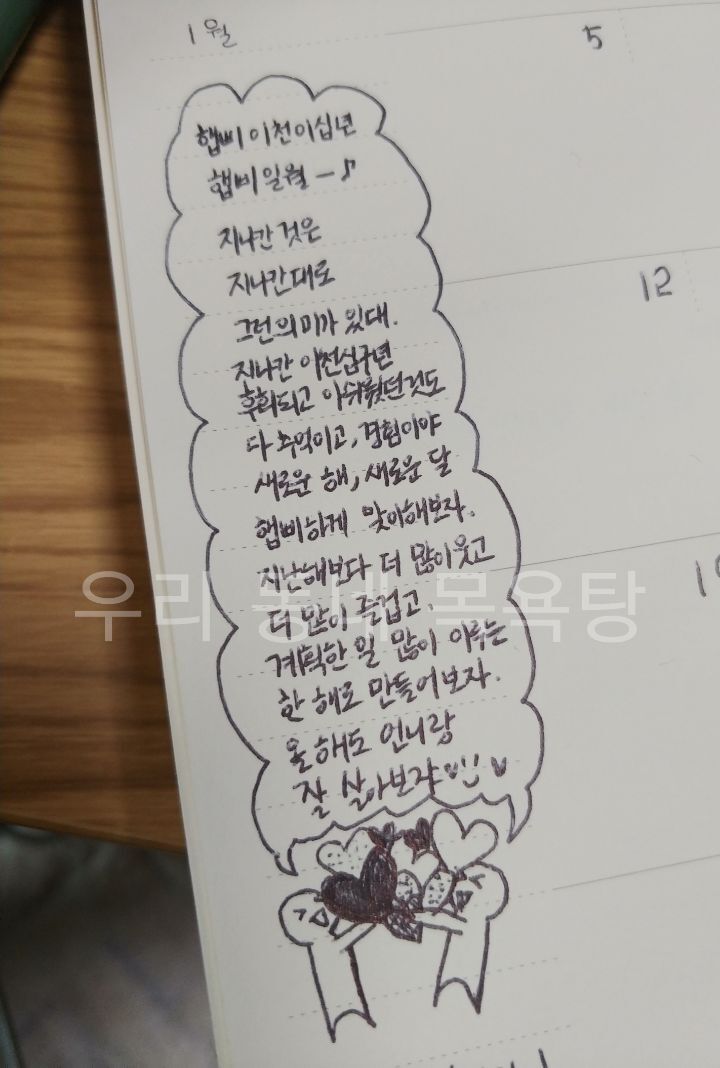 1월
5
햅삐 이천이십년
햅삐 일월 ㅡ♪
지나간 것은
지나간대로
12
그런 의미가 있대.
지나간 이천십구년
후회되고 아쉬웠던것도
다 추억이고, 경험이야
새로운 해, 새로운 달
햅삐하게 맞이해보자.
지난해보다 더 많이 웃고
더 많이 즐겁고.
우리 동네 목욕탕
계획한 일 많이 이루는
한 해로 만들어보자.
올 해도 언니랑
잘 살아보쟈♥"♥